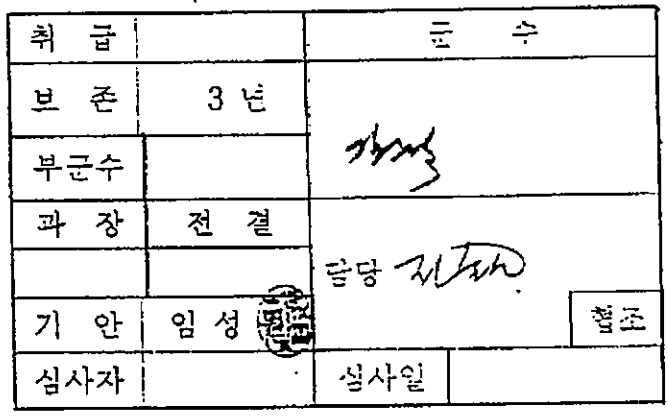 취 급 군 수
보 존 3 년
부군수
과 장 전 결
담당
기 안 임 성 협조
심사자 심사일